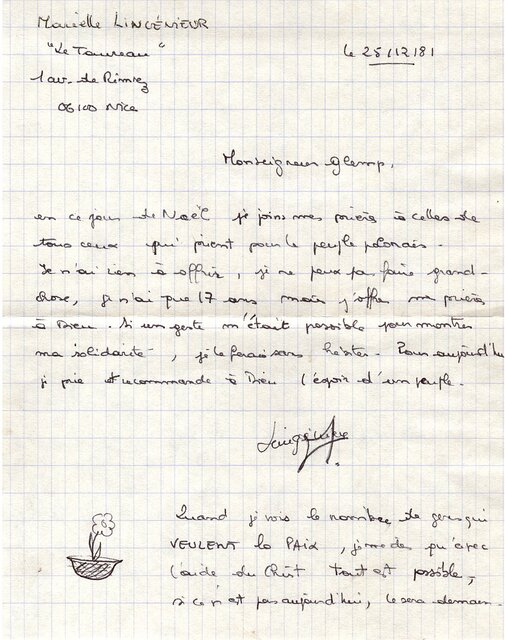 Marielle LINGÉNIEUR
"Le Taureau"
1 av. de Rimiez
06100 Nice
le 25/12/81
Monseigneur Glemp,
en ce jour de Noël je joins mes prières à celles de
tous ceux qui prient pour le peuple polonais.
Je n'ai rien à offrir, je ne peux pas faire grand-
chose, je n'ai que 17 ans mais j'offre ma prière
à Dieu. Si un geste m'était possible pour montrer
ma solidarité, je le ferais sans hésiter. Pour aujourd'hui
je prie et recommande à Dieu l'espoir d'un peuple.
Lingénieur
Quand je vois le nombre de gens qui
VEULENT la PAIX, je me dis qu'avec
l'aide du Christ tout est possible,
si ce n'est pas aujourd'hui, ce sera demain.